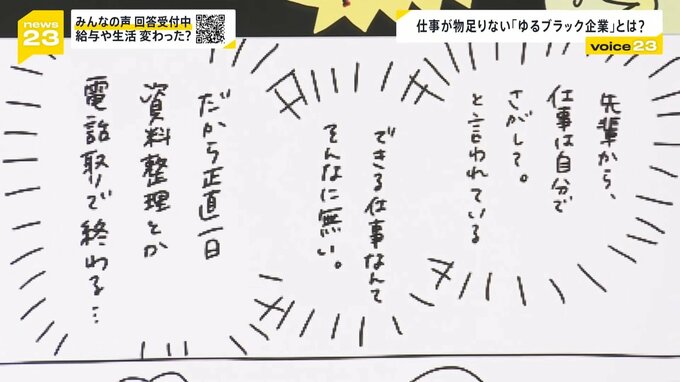 news
23
みんなの声 回答受付中
給与や生活 変わった?
仕事が物足りない「ゆるブラック企業」とは?
voice23
先輩から、
仕事は自分で
さがして。
と言われている
できる仕事なんて
そんなに無い。
だから正直一日
資料整理とか
電話取りで終わる…